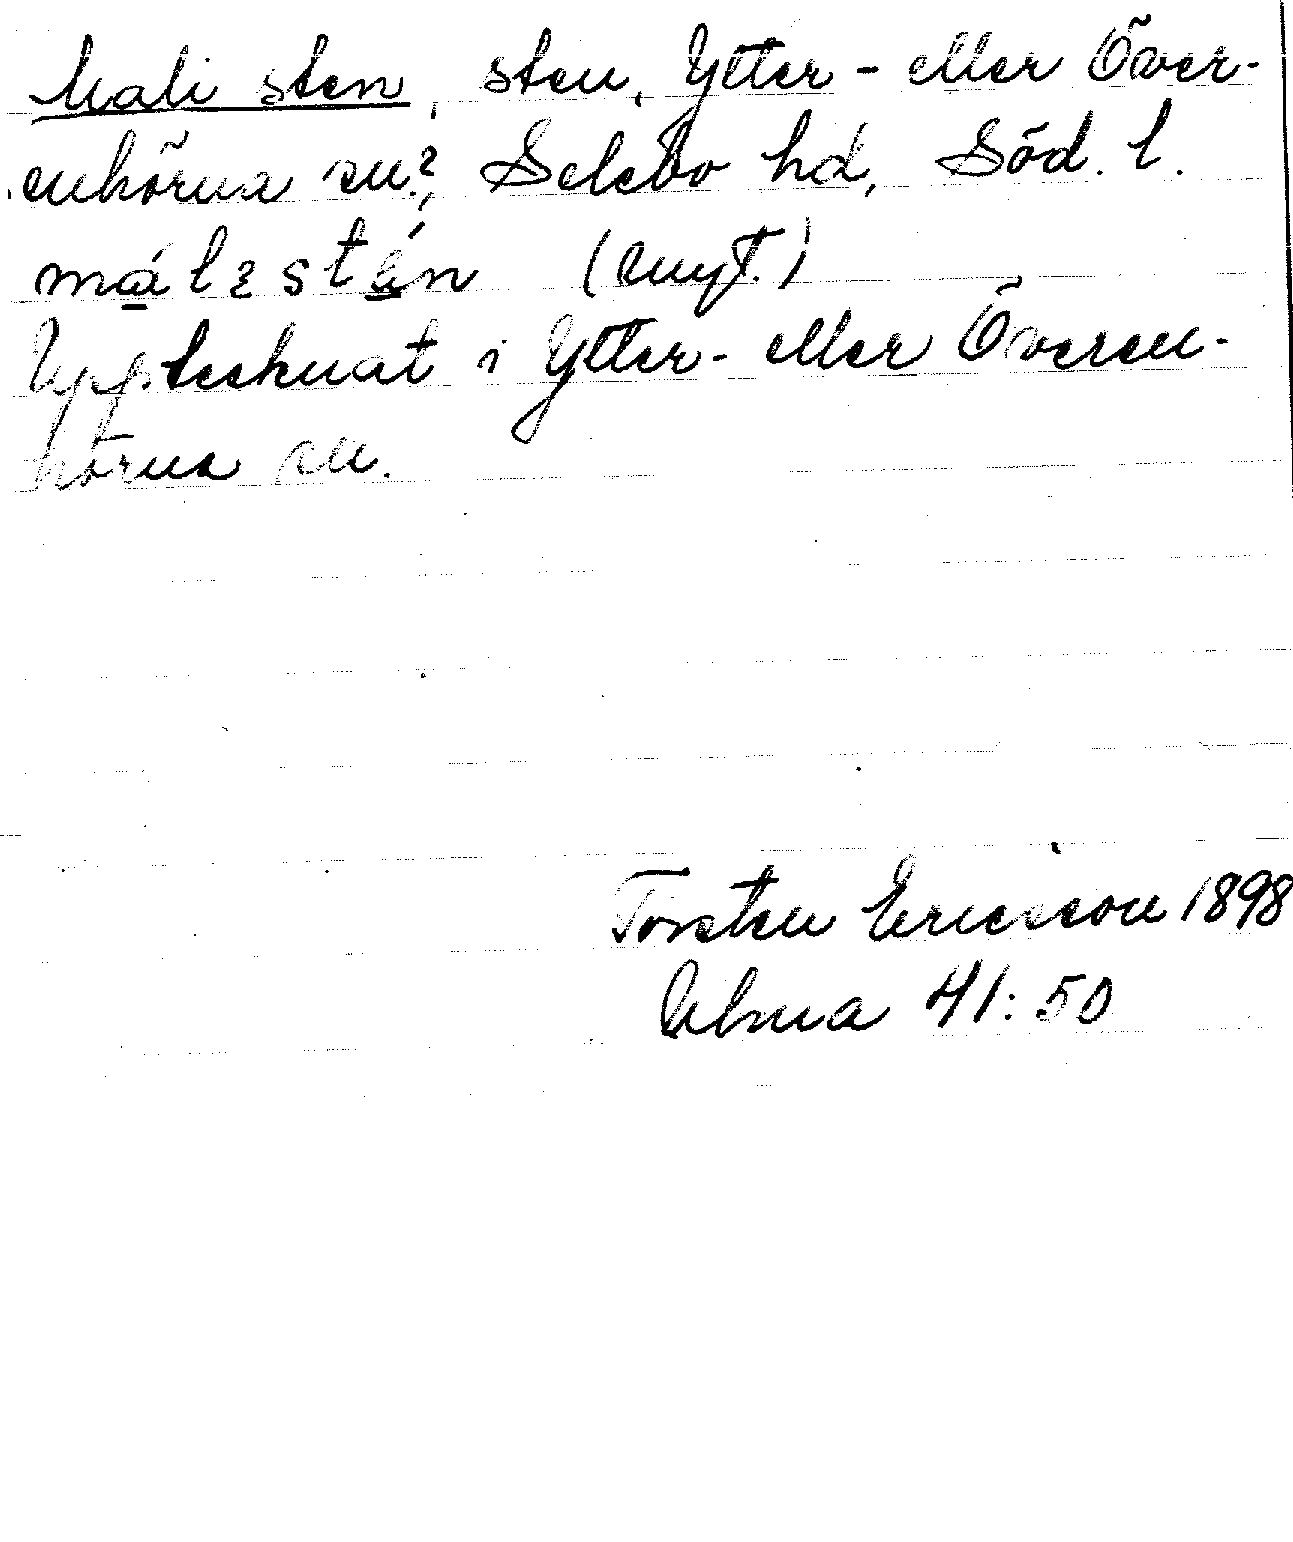 Mali sten, sten, Ytter- eller Över-
enhörna sn?, Selebo hd, Söd. l.
(myt.)
Uppteeknat i Ytter- eller Överen-
hörna sn.
Torsten Ericsson 1898
Ulma 41:50